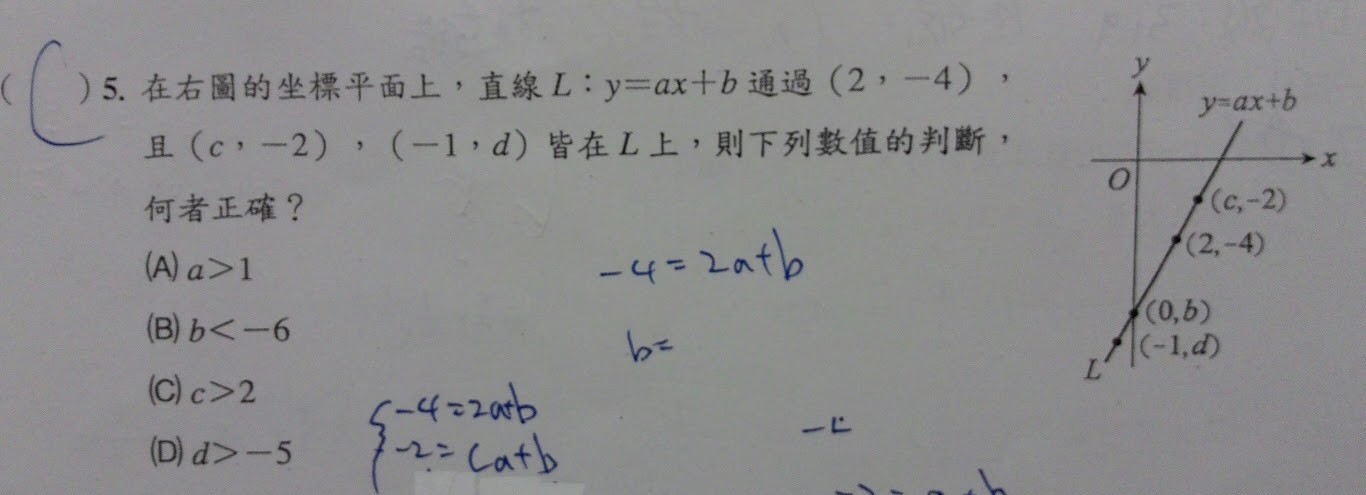 ( C )5. 在右圖的坐標平面上，直線 L：y=ax+b 通過（2，-4），
且（c，-2），（-1，d）皆在 L 上，則下列數值的判斷，
何者正確？
(A) a>1
(B) b<-6
(C) c>2
(D) d>-5
-4=2a+b
b=
-4=2a+b
-2=ca+b
y
y=ax+b
x
O
(c,-2)
(2,-4)
(0,b)
(-1,d)
L